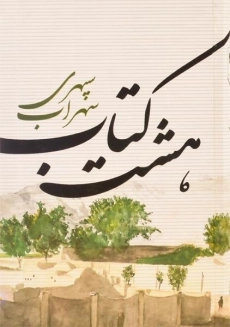 سهراب سپهری
هشت کتاب